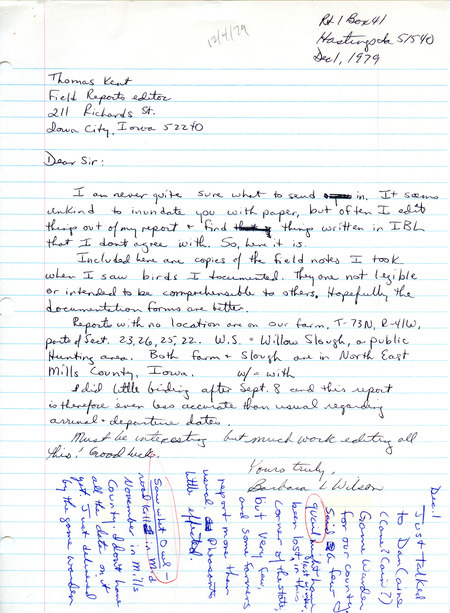 12/4/79
Rt 1 Box 41
Hastings Ia 51540
Dec 1, 1979
Thomas Kent
Field Reports editor
211 Richards St.
Iowa City, Iowa 52240
Dear Sir:
I am never quite sure what to send in. It seems
unkind to inundate you with paper, but often I edit
things out of my report & find things written in IBL
that I don't agree with. So, here it is.
Included here are copies of the field notes I took
when I saw birds I documented. They are not legible
or intended to be comprehensible to others. Hopefully the
documentation forms are better.
Reports with no location are on our farm, T-73N, R-41W,
parts of Sect. 23, 26, 25, 22. W.S. = Willow Slough, a public
Hunting area. Both farm & Slough are in North East
Mills County, Iowa. w/ = with
I did little birding after Sept. 8 and this report
is therefore even less accurate than usual regarding
arrival & departure dates.
Must be interesting but much work editing all
this! Good luck.
Yours truly,
Barbara L Wilson
Dec 1
Just talked
to Dan
Game Warden
for our county.
Said a few
quail might have
been lost, this
corner of the state,
but very few,
and some farmers
report more than
usual. Pheasants
little effected.
Saw what Owl -
road killed in mid
November in Mills
County. I don't have
all the data on it
yet. Just delivered
by the game warden